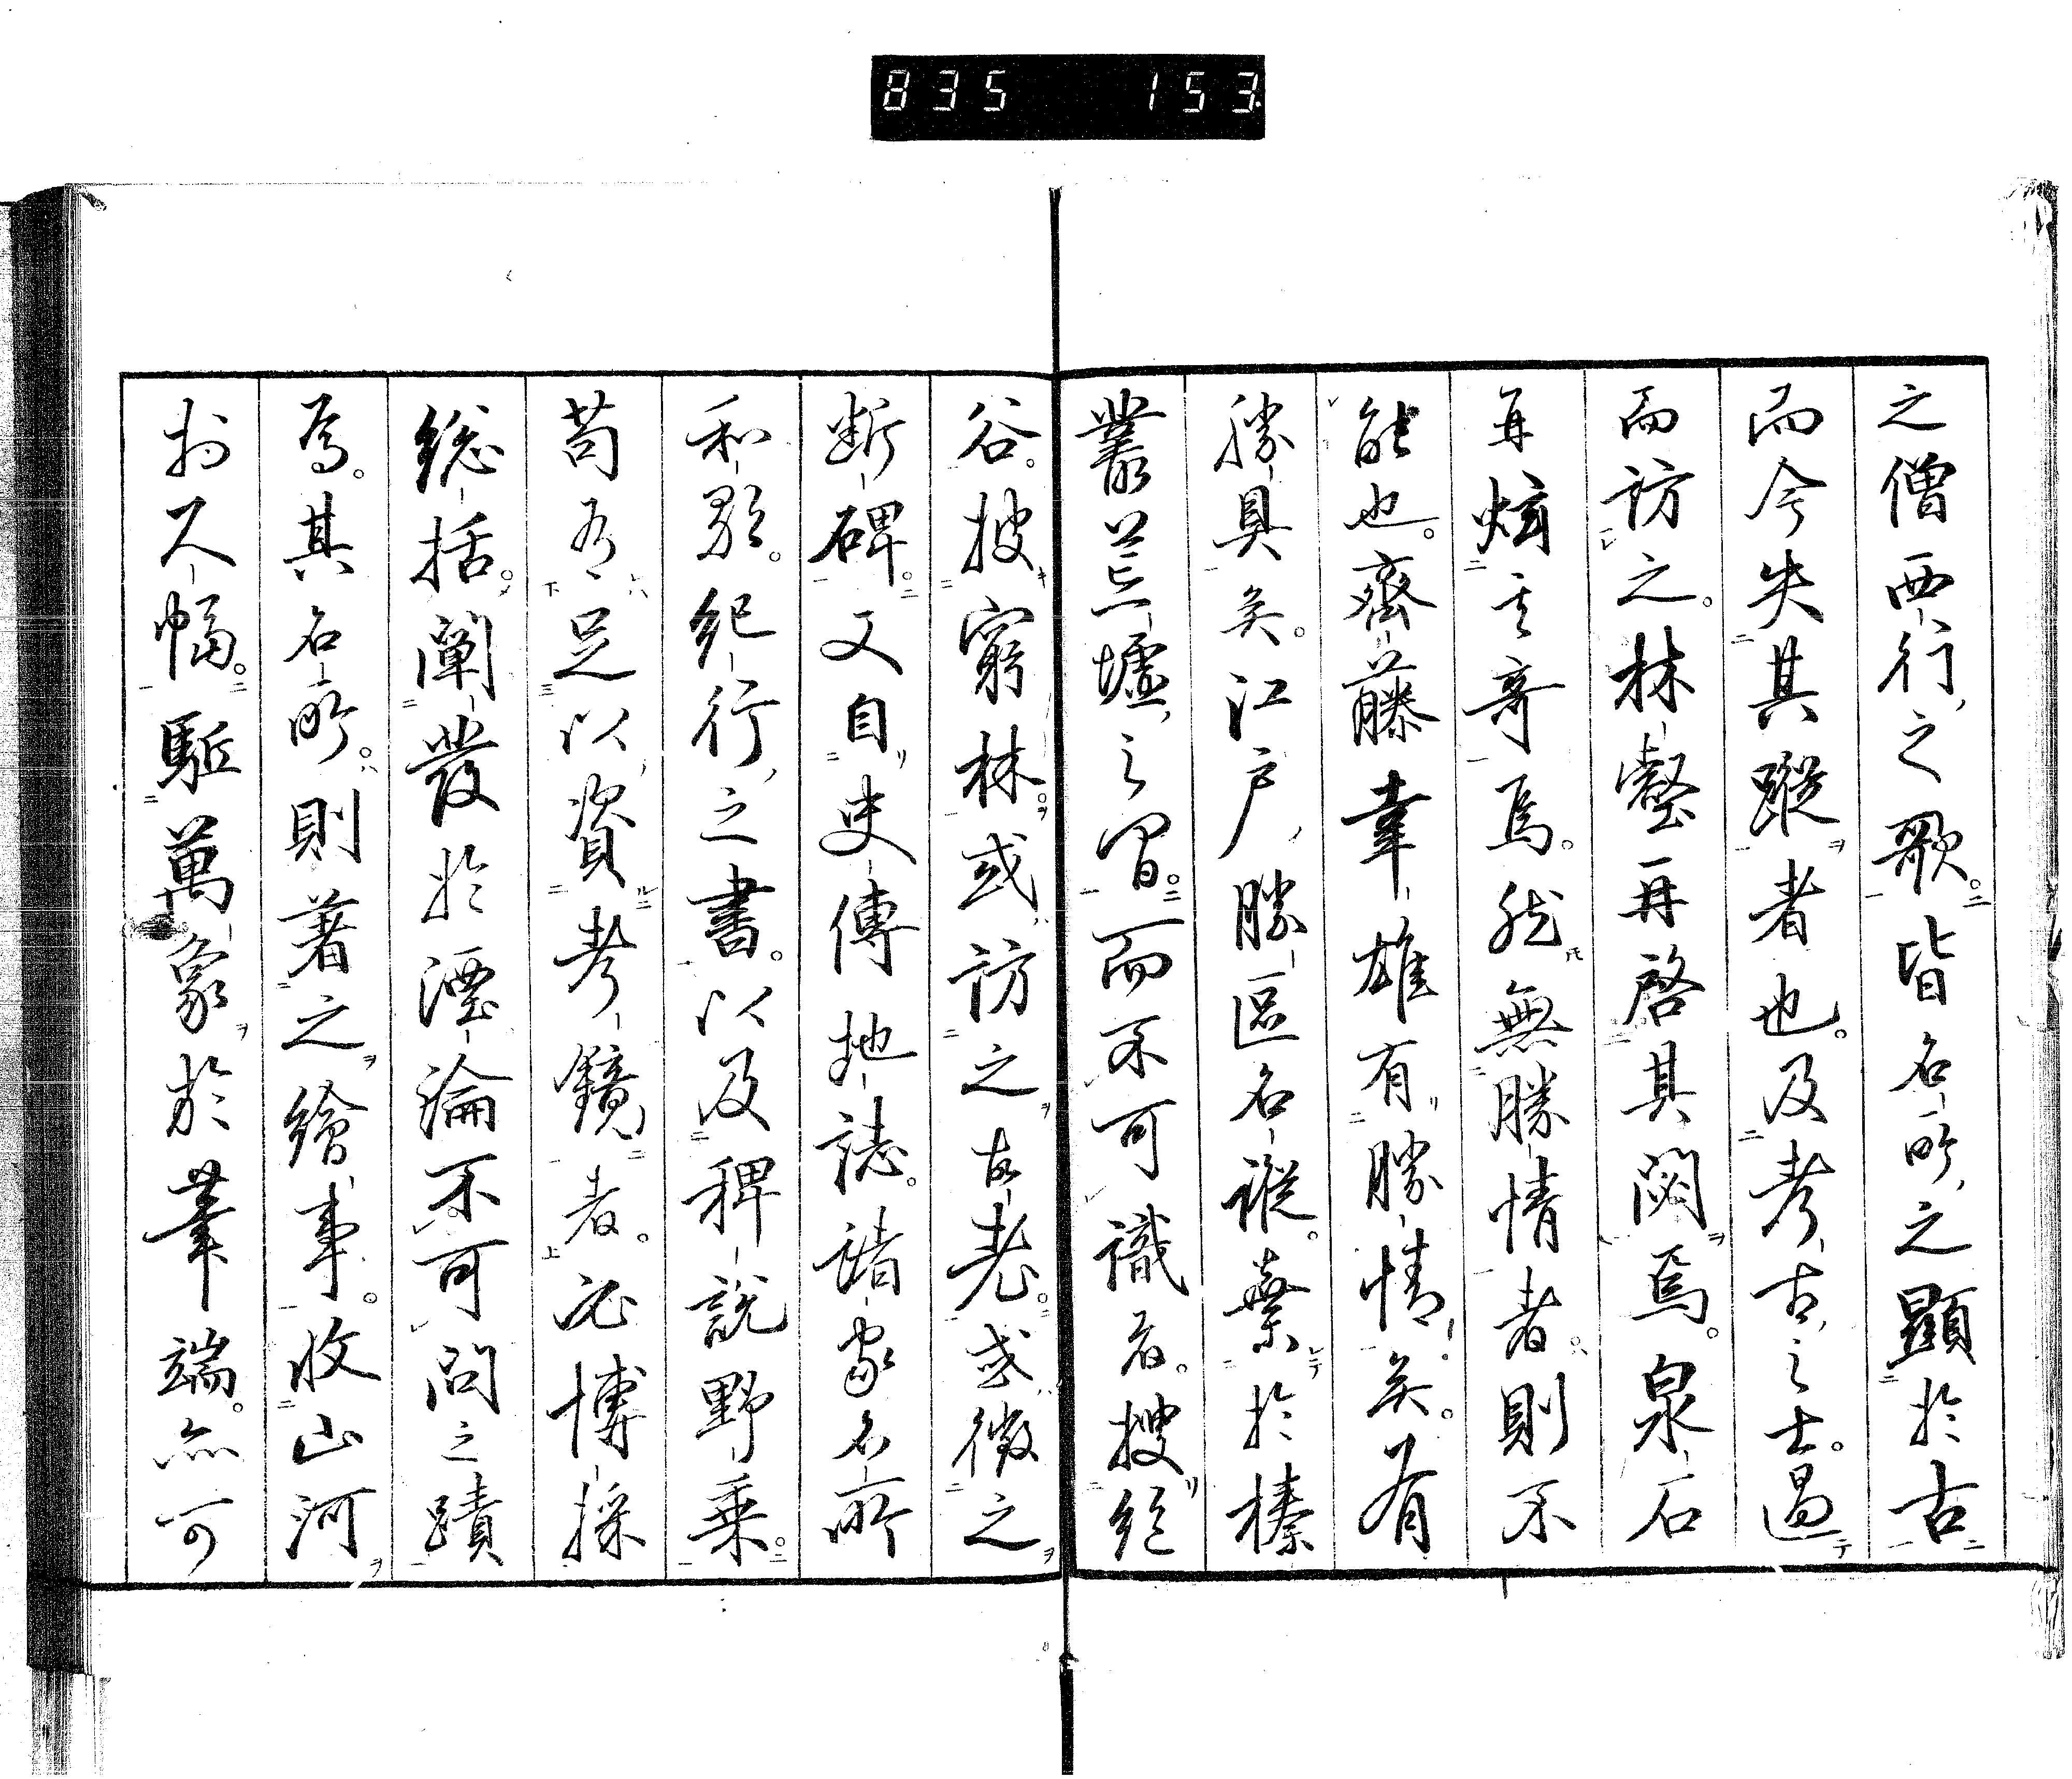 835 153
之僧西行之歌。皆名所之顯於古
而今失其蹤者也。及考古之士。過
而訪之。林壑再啓其閟焉。泉石
再炫其奇焉。然無勝情者則不
能也。齋藤幸雄有勝情矣。有
勝具矣。江戸勝區名蹤。蕪於榛
叢荒墟之間。而不可識者。搜絕
谷。披窮林。或訪之古老。或徵之
斷碑。又自史傳地誌。諸家名所
和歌。紀行之書。以及稗說野乘。
苟有足以資考鏡者。必博採
總括。闡發於湮淪不可問之蹟
焉。其名所。則著之繪事。收山河
於尺幅。驅萬象於筆端。亦可